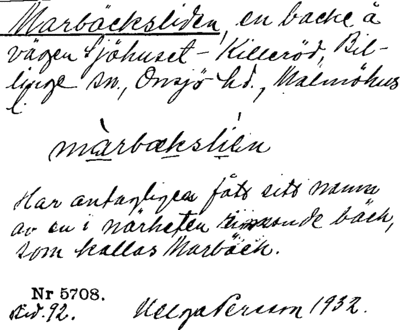 Marbäcksliden, en backe å
vägen Sjöhuset - Killeröd, Bil-
linge sn., Onsjö hd., Malmöhus
l.
màrbækslíen
Har antagligen fått sitt namn
av en i närheten rinnande bäck,
som kallas Marbäck.
Nr 5708.
Bd. 92. Helge Persson 1932.